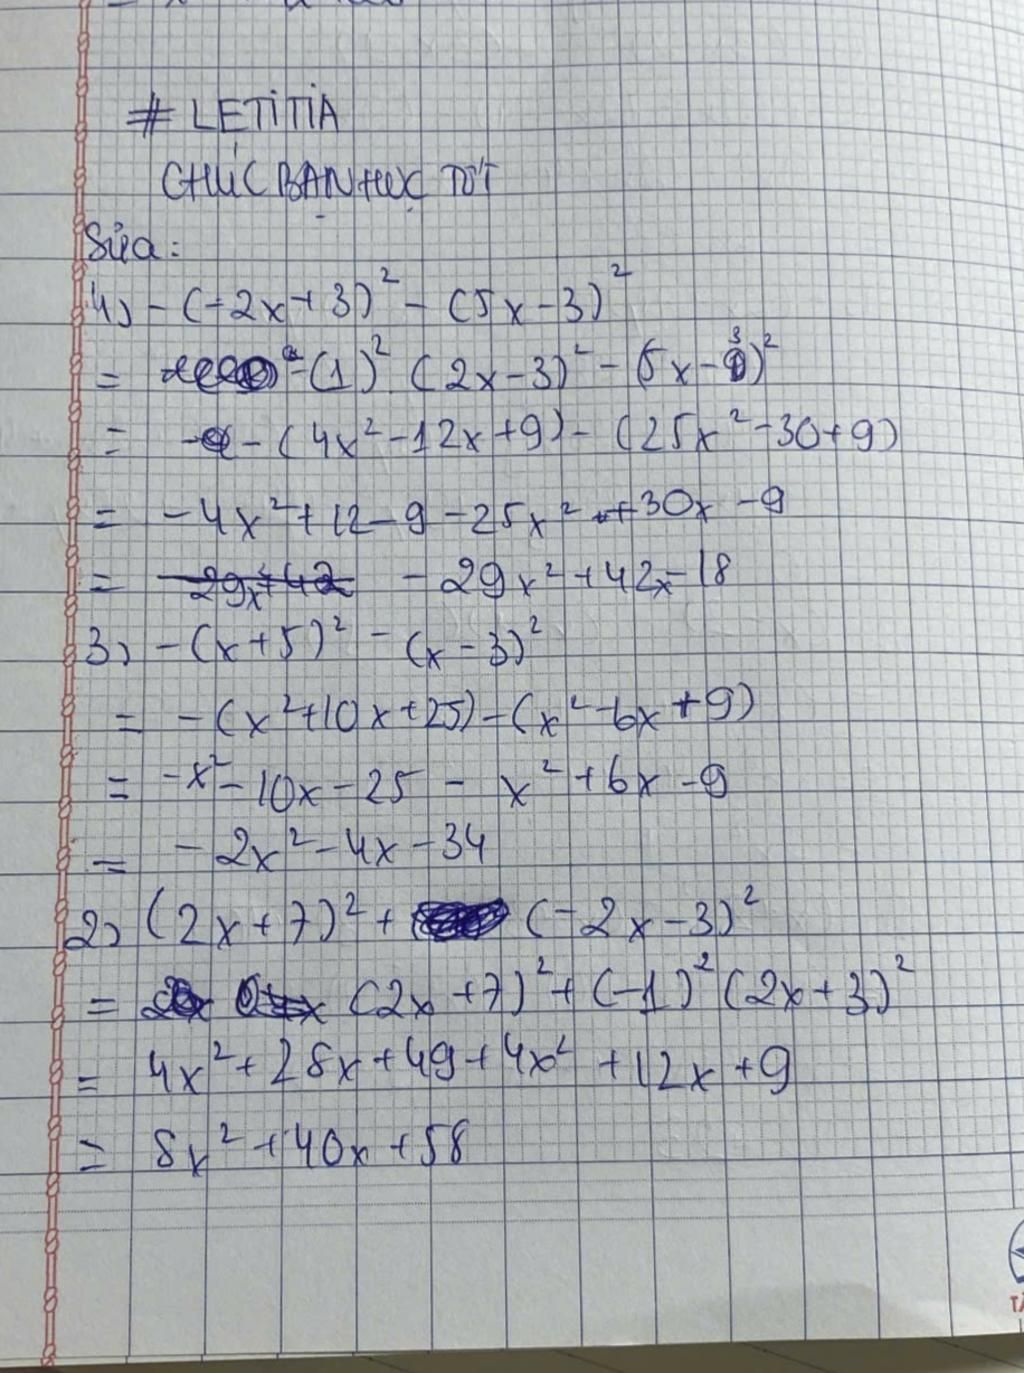 # LETITIA
CHÚC BẠN HỌC TỐT
Sửa:
4) -(-2x+3)² - (5x-3)²
= -(1)² (2x-3)² - (5x-3)²
= - (4x²-12x+9) - (25x²-30+9)
= -4x²+12-9-25x²+30x-9
= -29x²+42x-18
3) -(x+5)² - (x-3)²
= -(x²+10x+25)-(x²-6x+9)
= -x²-10x-25 - x²+6x-9
= -2x²-4x-34
2) (2x+7)² + (-2x-3)²
= (2x+7)²+(-1)²(2x+3)²
= 4x²+28x+49+4x²+12x+9
= 8x²+40x+58